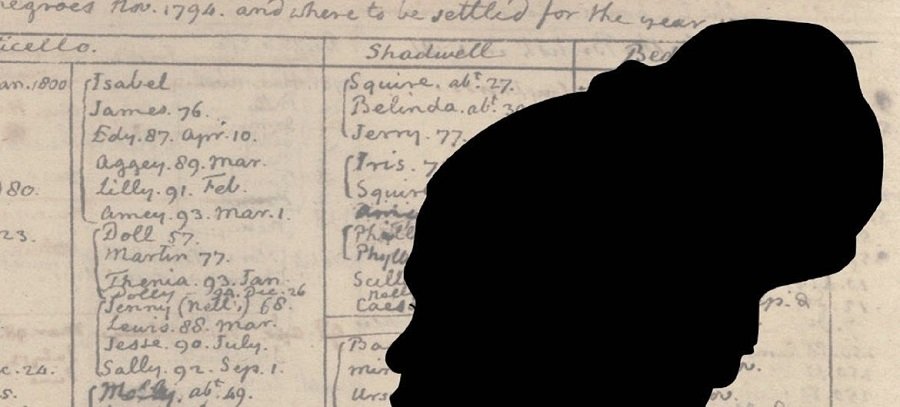 negroes Nov. 1794. and where to be settled for the year
icello. Shadwell Bed
an. 1800
Isabel
James. 76.
Edy. 87. Apr. 10.
Aggey. 89. Mar.
80. Lilly. 91. Feb.
Amey. 93. Mar. 1.
23. Doll 57.
Martin 77.
Thenia. 93. Jan.
Dolly - 94. Dec. 26
Jenny (Nell's) 68.
Lewis. 88. Mar.
Jesse. 90. July.
c. 24. Sally. 92. Sep. 1.
s. abt. 49.
Squire. abt. 27.
Belinda. abt.
Jerry. 77.
Iris. 7
Squir
Phyll
Scill
Caes
Ba
Urs